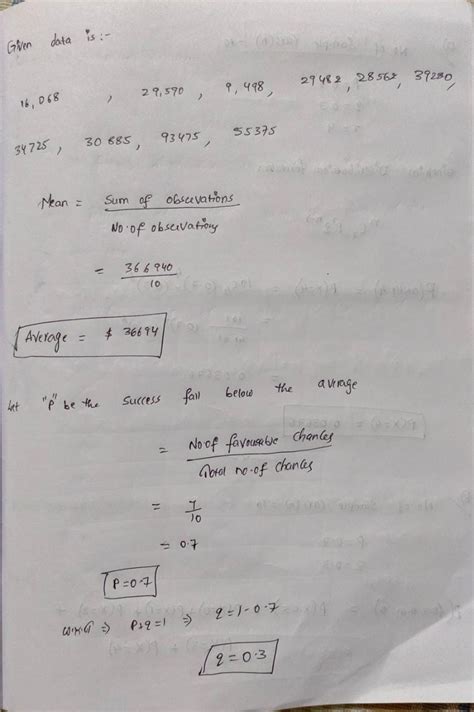 Given data is :-
16,068 , 29,590 , 9,498, 29482, 28562, 39280,
34725, 30885, 93475, 55375
Mean = Sum of observations
No. of observations
= 366940
10
Average = $ 36694
Let "P" be the success fall below the average
= No of favourable chances
Total no. of chances
= 7
10
= 0.7
P = 0.7
W.K.T ⇒ P+q=1 ⇒ q=1-0.7
q = 0.3